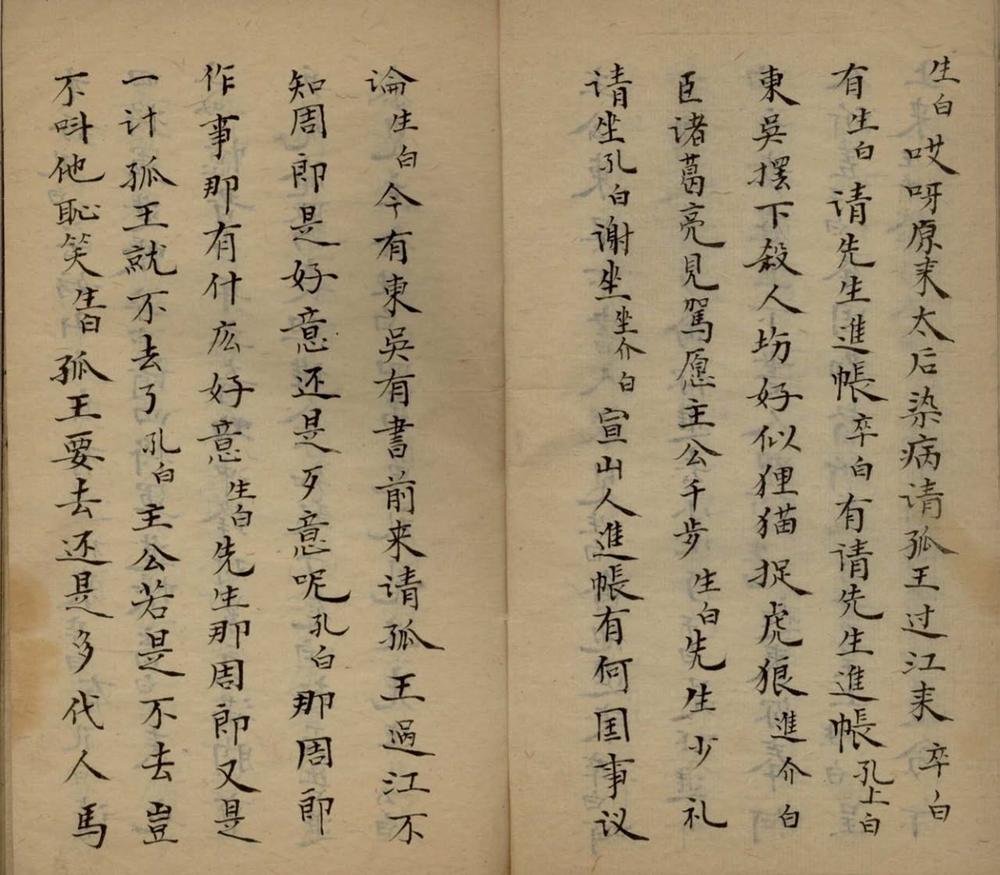 生白哎呀原来太后染病请孤王过江来卒白
有生白请先生進帳卒白有请先生進帳孔上白
東吳摆下殺人坊好似狸猫捉虎狼進介白
臣诸葛亮見駕愿主公千步生白先生少礼
请坐孔白谢坐坐介白宣山人進帳有何国事议
论生白今有東吳有書前来请孤王過江不
知周郎是好意还是歹意呢孔白那周郎
作事那有什庅好意生白先生那周郎又是
一计孤王就不去了孔白主公若是不去豈
不呌他恥笑生白孤王要去还是多代人馬